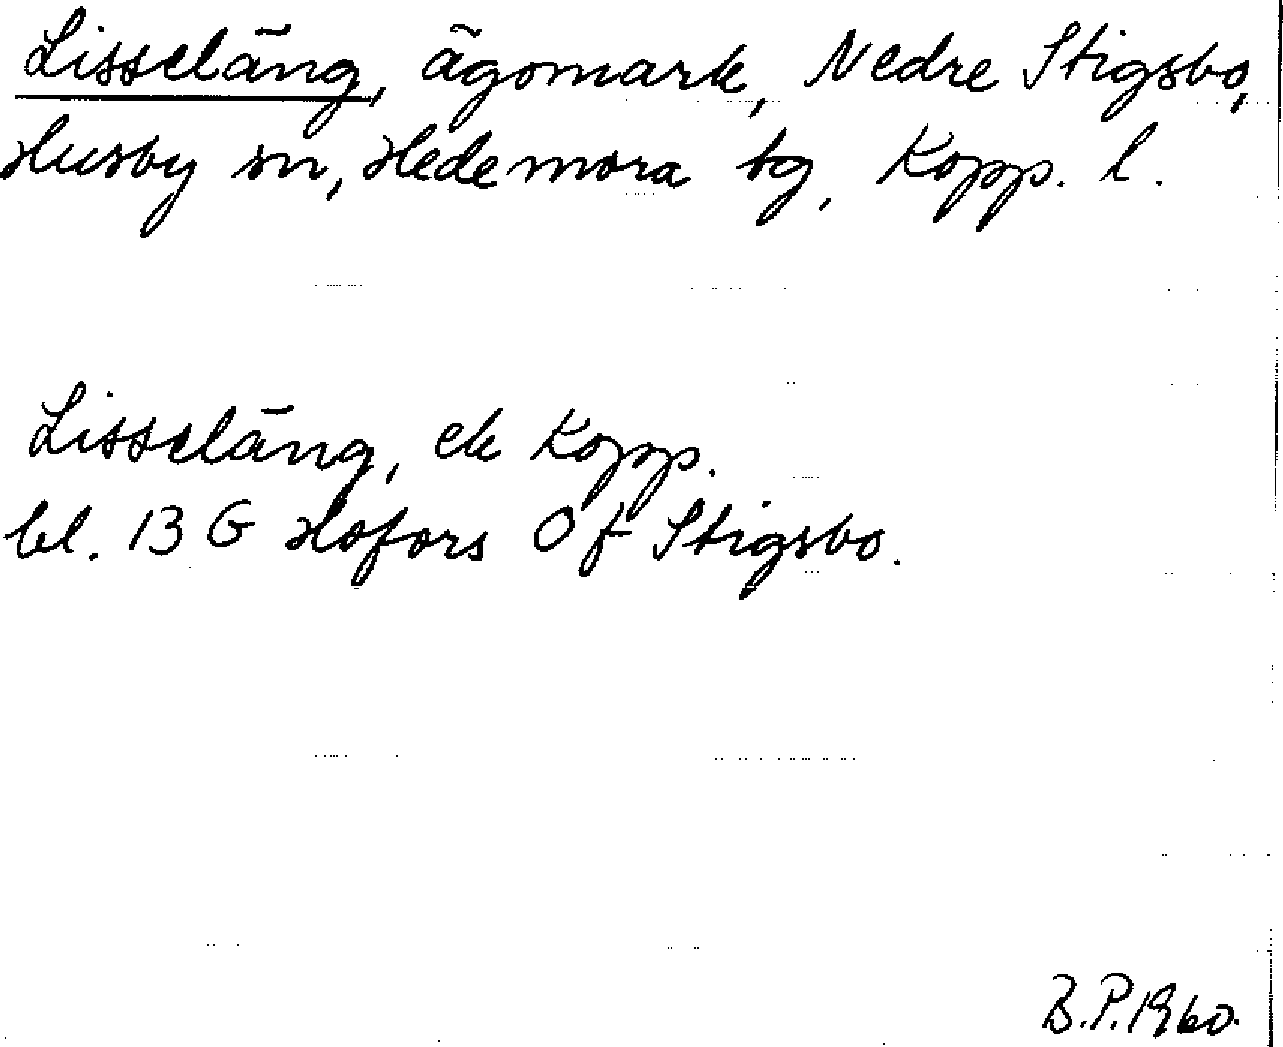 Lisseläng, ägomark, Nedre Stigsbo,
Husby sn, Hedemora tg, Kopp. l.
Lisseläng, ek Kopp.
bl. 13 G Hofors 0 f Stigsbo.
B.P. 1960.